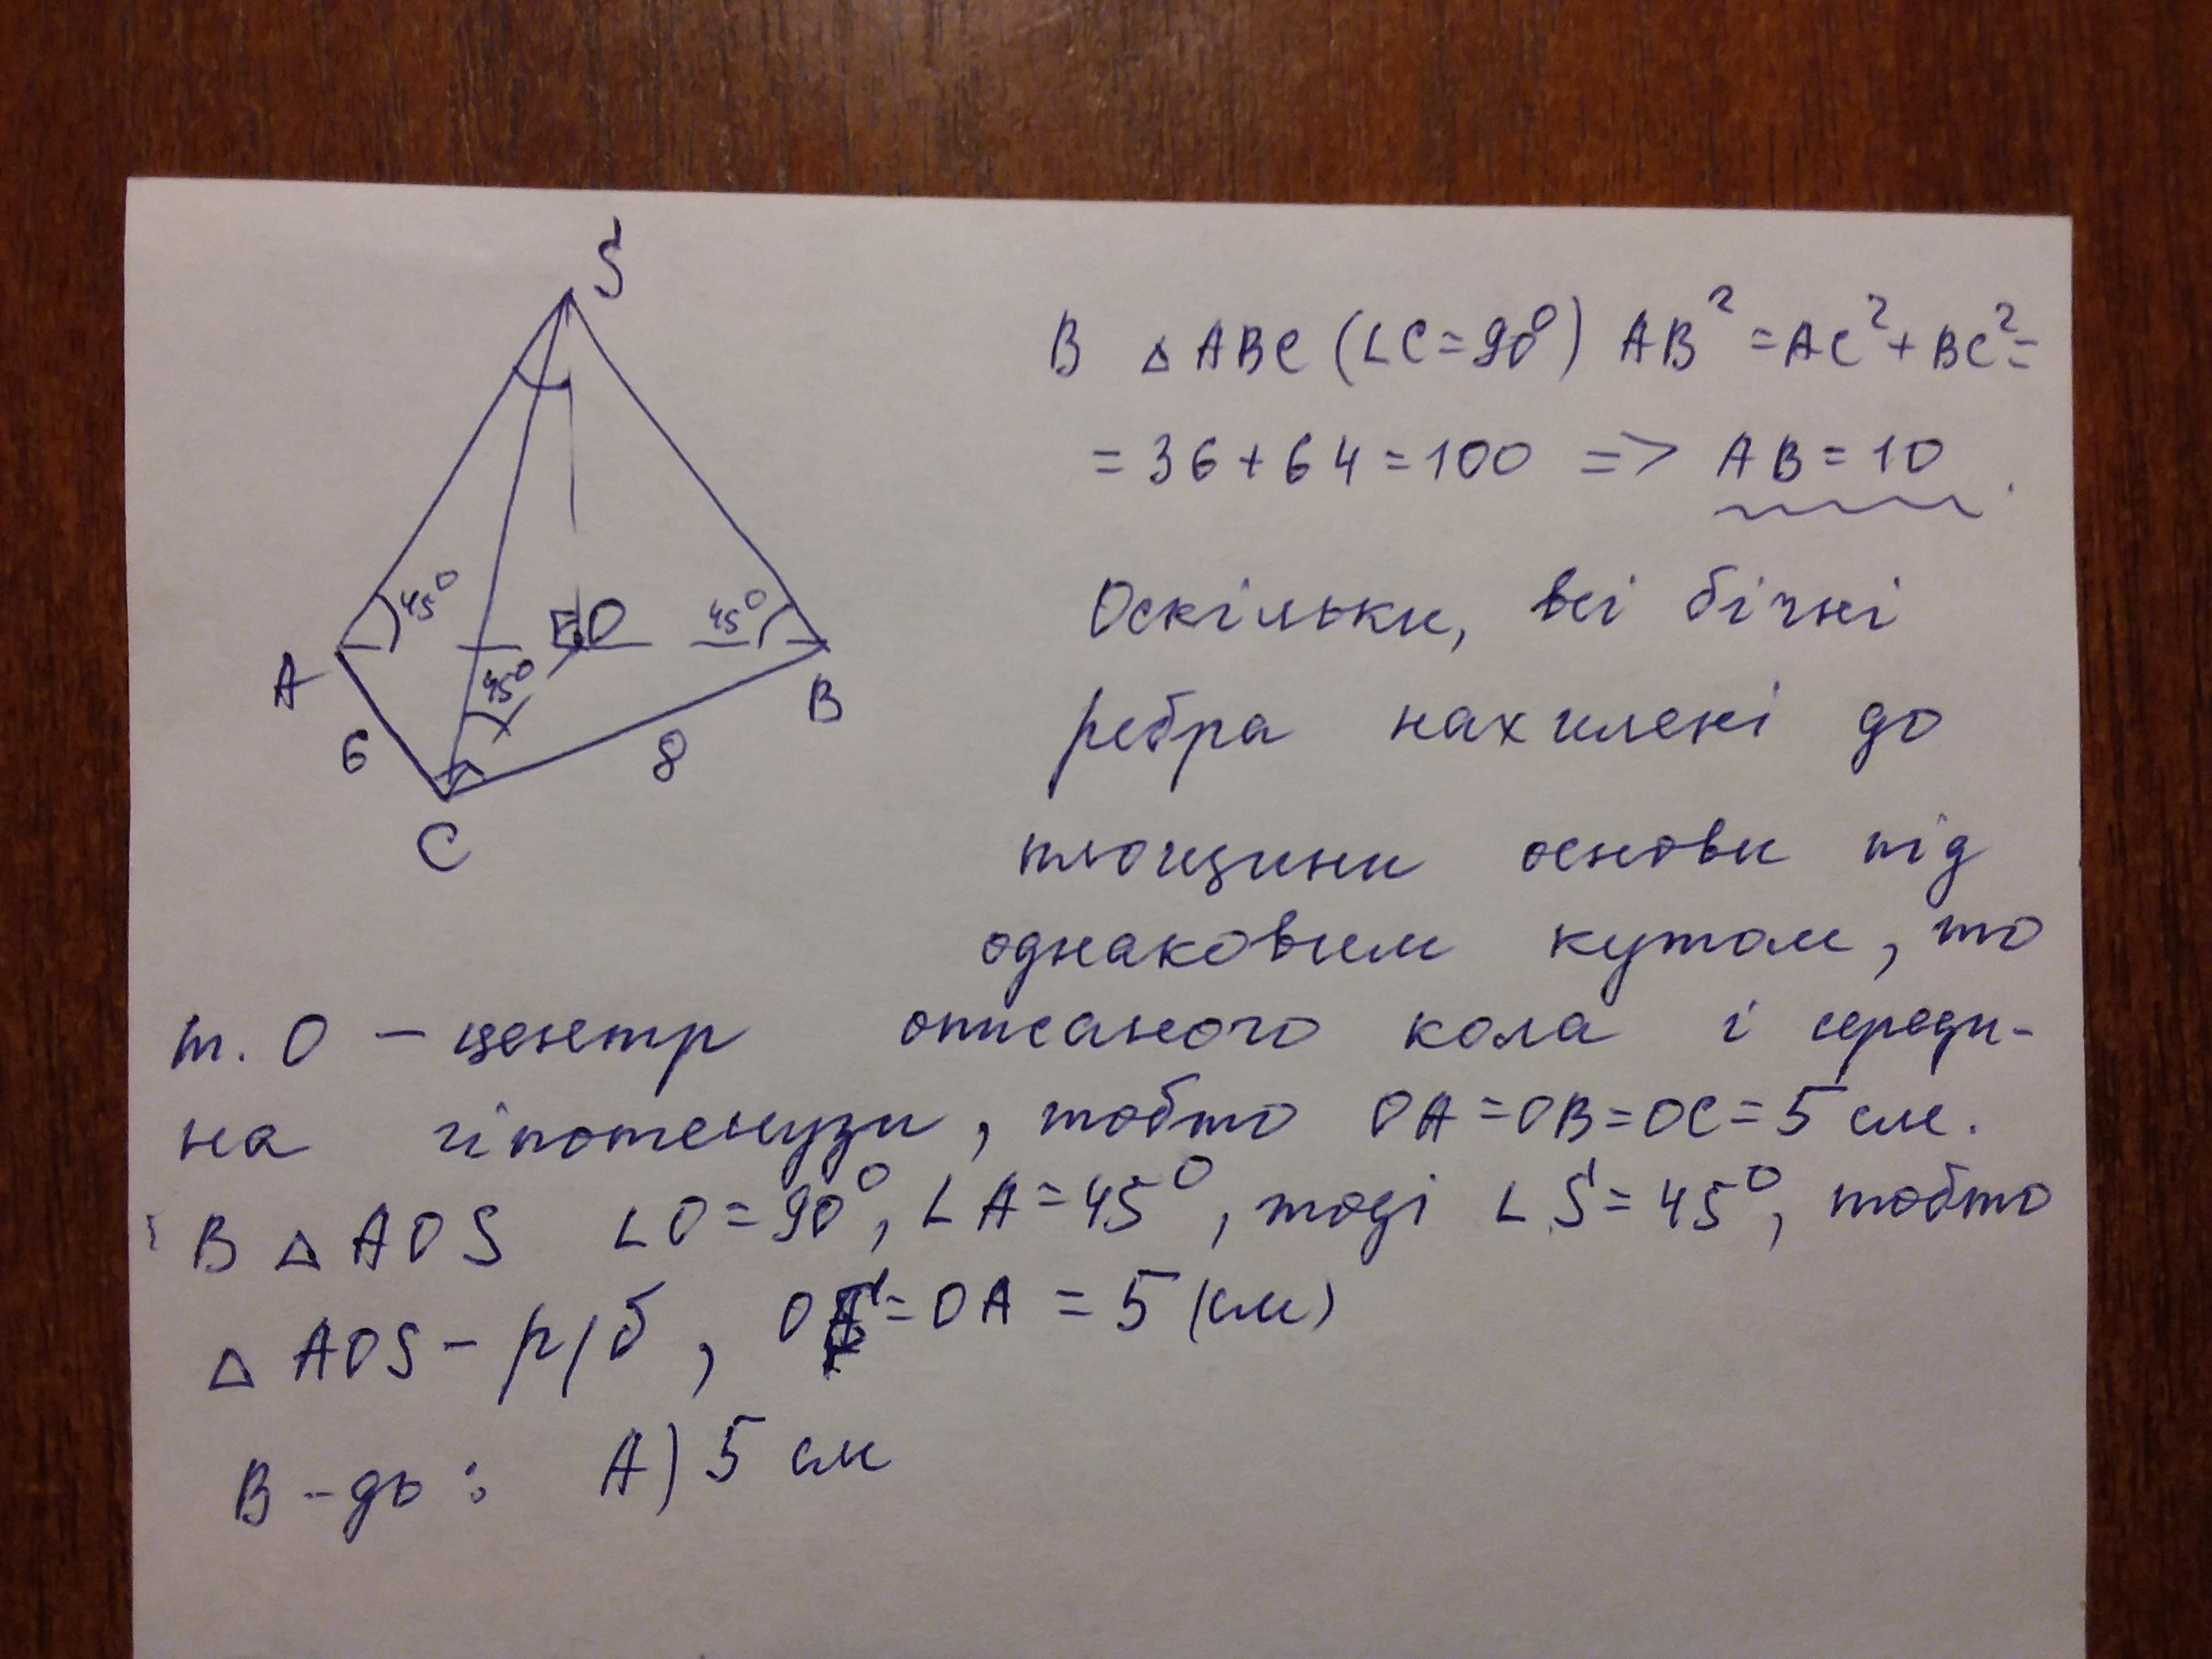 S
45°
O
45°
A
45°
B
6
8
C
В △ ABC (∠C=90°) AB²=AC²+BC²=
=36+64=100 => AB=10.
Оскільки, всі бічні
ребра нахилені до
площини основи під
однаковим кутом, то
т. О – центр описаного кола і середи-
на гіпотенузи, тобто OA=OB=OC=5 см.
В △ AOS ∠O=90°, ∠A=45°, тоді ∠S=45°, тобто
△ AOS – р/б, OS=OA=5 (см)
В-дь: А) 5 см